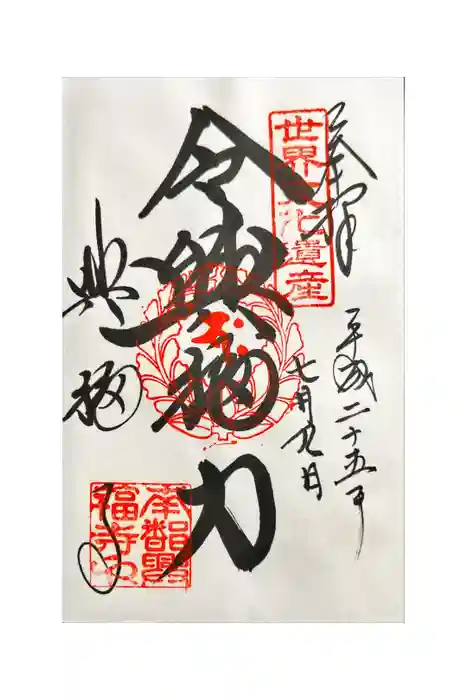 奉拝
世界文化遺産
平成二十五年
七月九日
令興福力
興福寺
南都興
福寺印